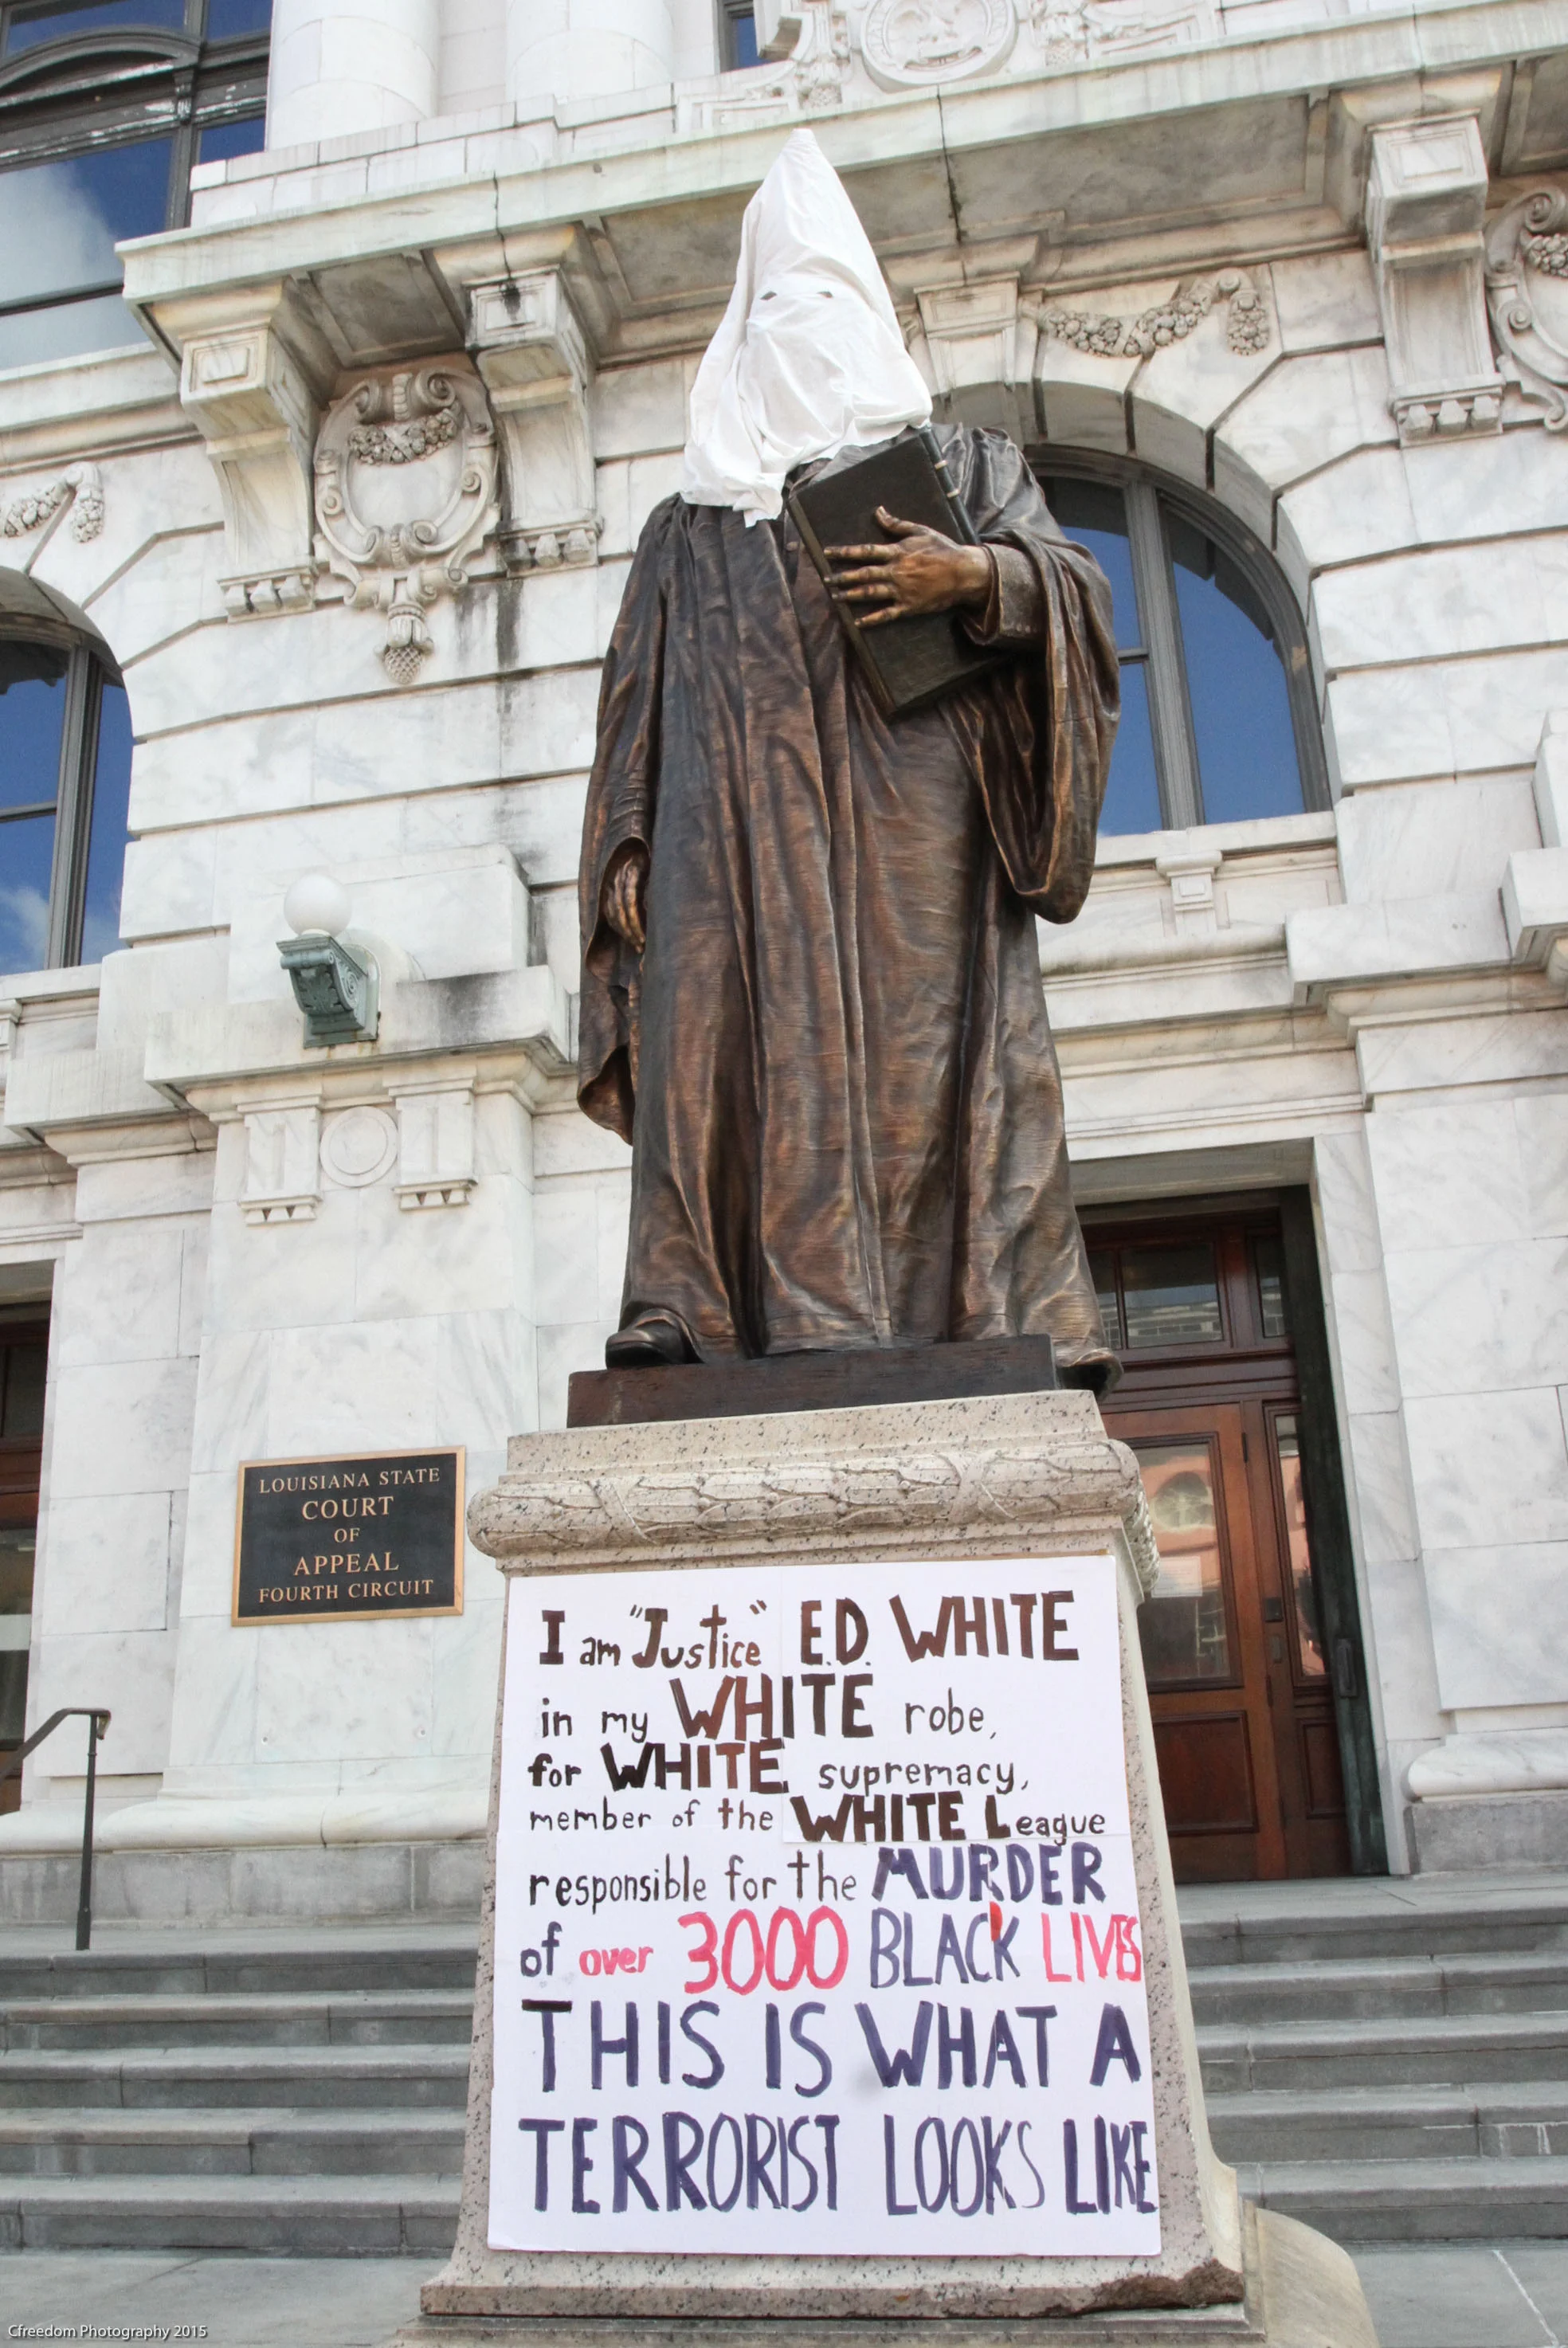 LOUISIANA STATE
COURT
OF
APPEAL
FOURTH CIRCUIT
I am "Justice" E.D. WHITE
in my WHITE robe,
for WHITE supremacy,
member of the WHITE League
responsible for the MURDER
of over 3000 BLACK LIVES
THIS IS WHAT A
TERRORIST LOOKS LIKE
Cfreedom Photography 2015